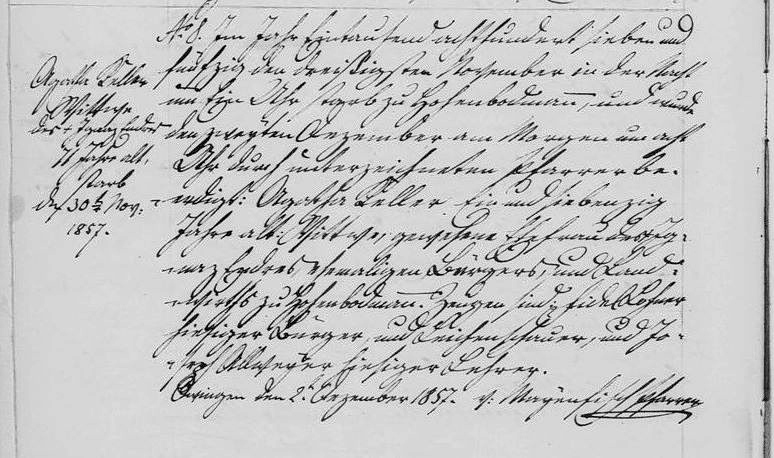 Agatha Keller
Wittwe
des + Ignaz Endres
71 Jahre alt,
starb
den 30t Nov:
1857.
No 8. Im Jahr Eintausend achthundert sieben und
fünfzig den dreißigsten November in der Nacht
um Ein Uhr starb zu Hohenbodmann, und wurde
den zweyten Dezember am Morgen um acht
Uhr durch unterzeichneten Pfarrer be-
erdigt: Agatha Keller Ein und siebenzig
Jahre alt: Wittwe, gewesene Ehefrau des Ig-
naz Endres, ehemaligen Bürgers, und Land-
wirths zu Hohenbodmann. Zeugen sind: Fidel
hiesiger Bürger, und Leichenschauer, und Jo-
seph Allweyer hiesiger Lehrer.
Owingen den 2t Dezember 1857. v: Mayenfisch Pfarrer